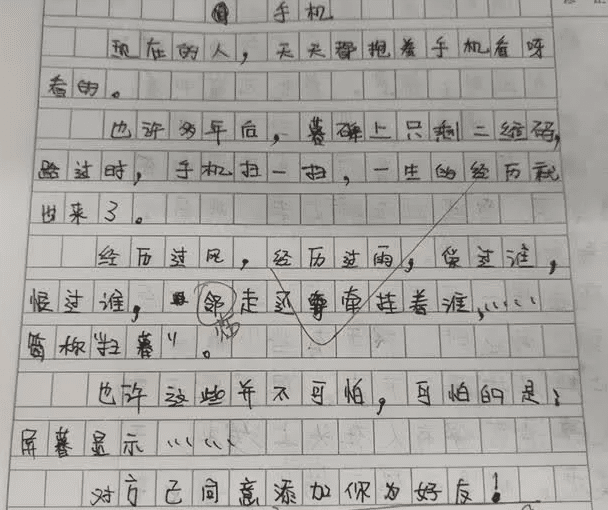 手机
现在的人，天天都抱着手机看呀
看的。
也许多年后，墓碑上只剩二维码，
路过时，手机扫一扫，一生的经历就
出来了。
经历过风，经历过雨，爱过谁，
恨过谁，临走还牵挂着谁……
简称"扫墓"。
也许这些并不可怕，可怕的是：
屏幕显示……
对方已同意添加你为好友！